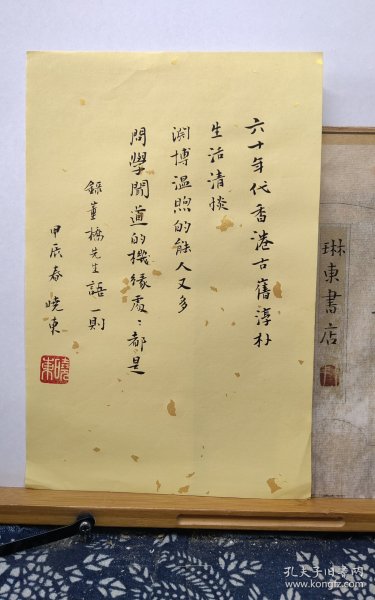 六十年代香港古舊淳朴
生活清惔
渊博温煦的能人又多
問學聞道的機缘處〻都是
錄董橋先生語一則
甲辰春 曉東
曉東
琳東書店
孔夫子旧书网
www.kongfz.com